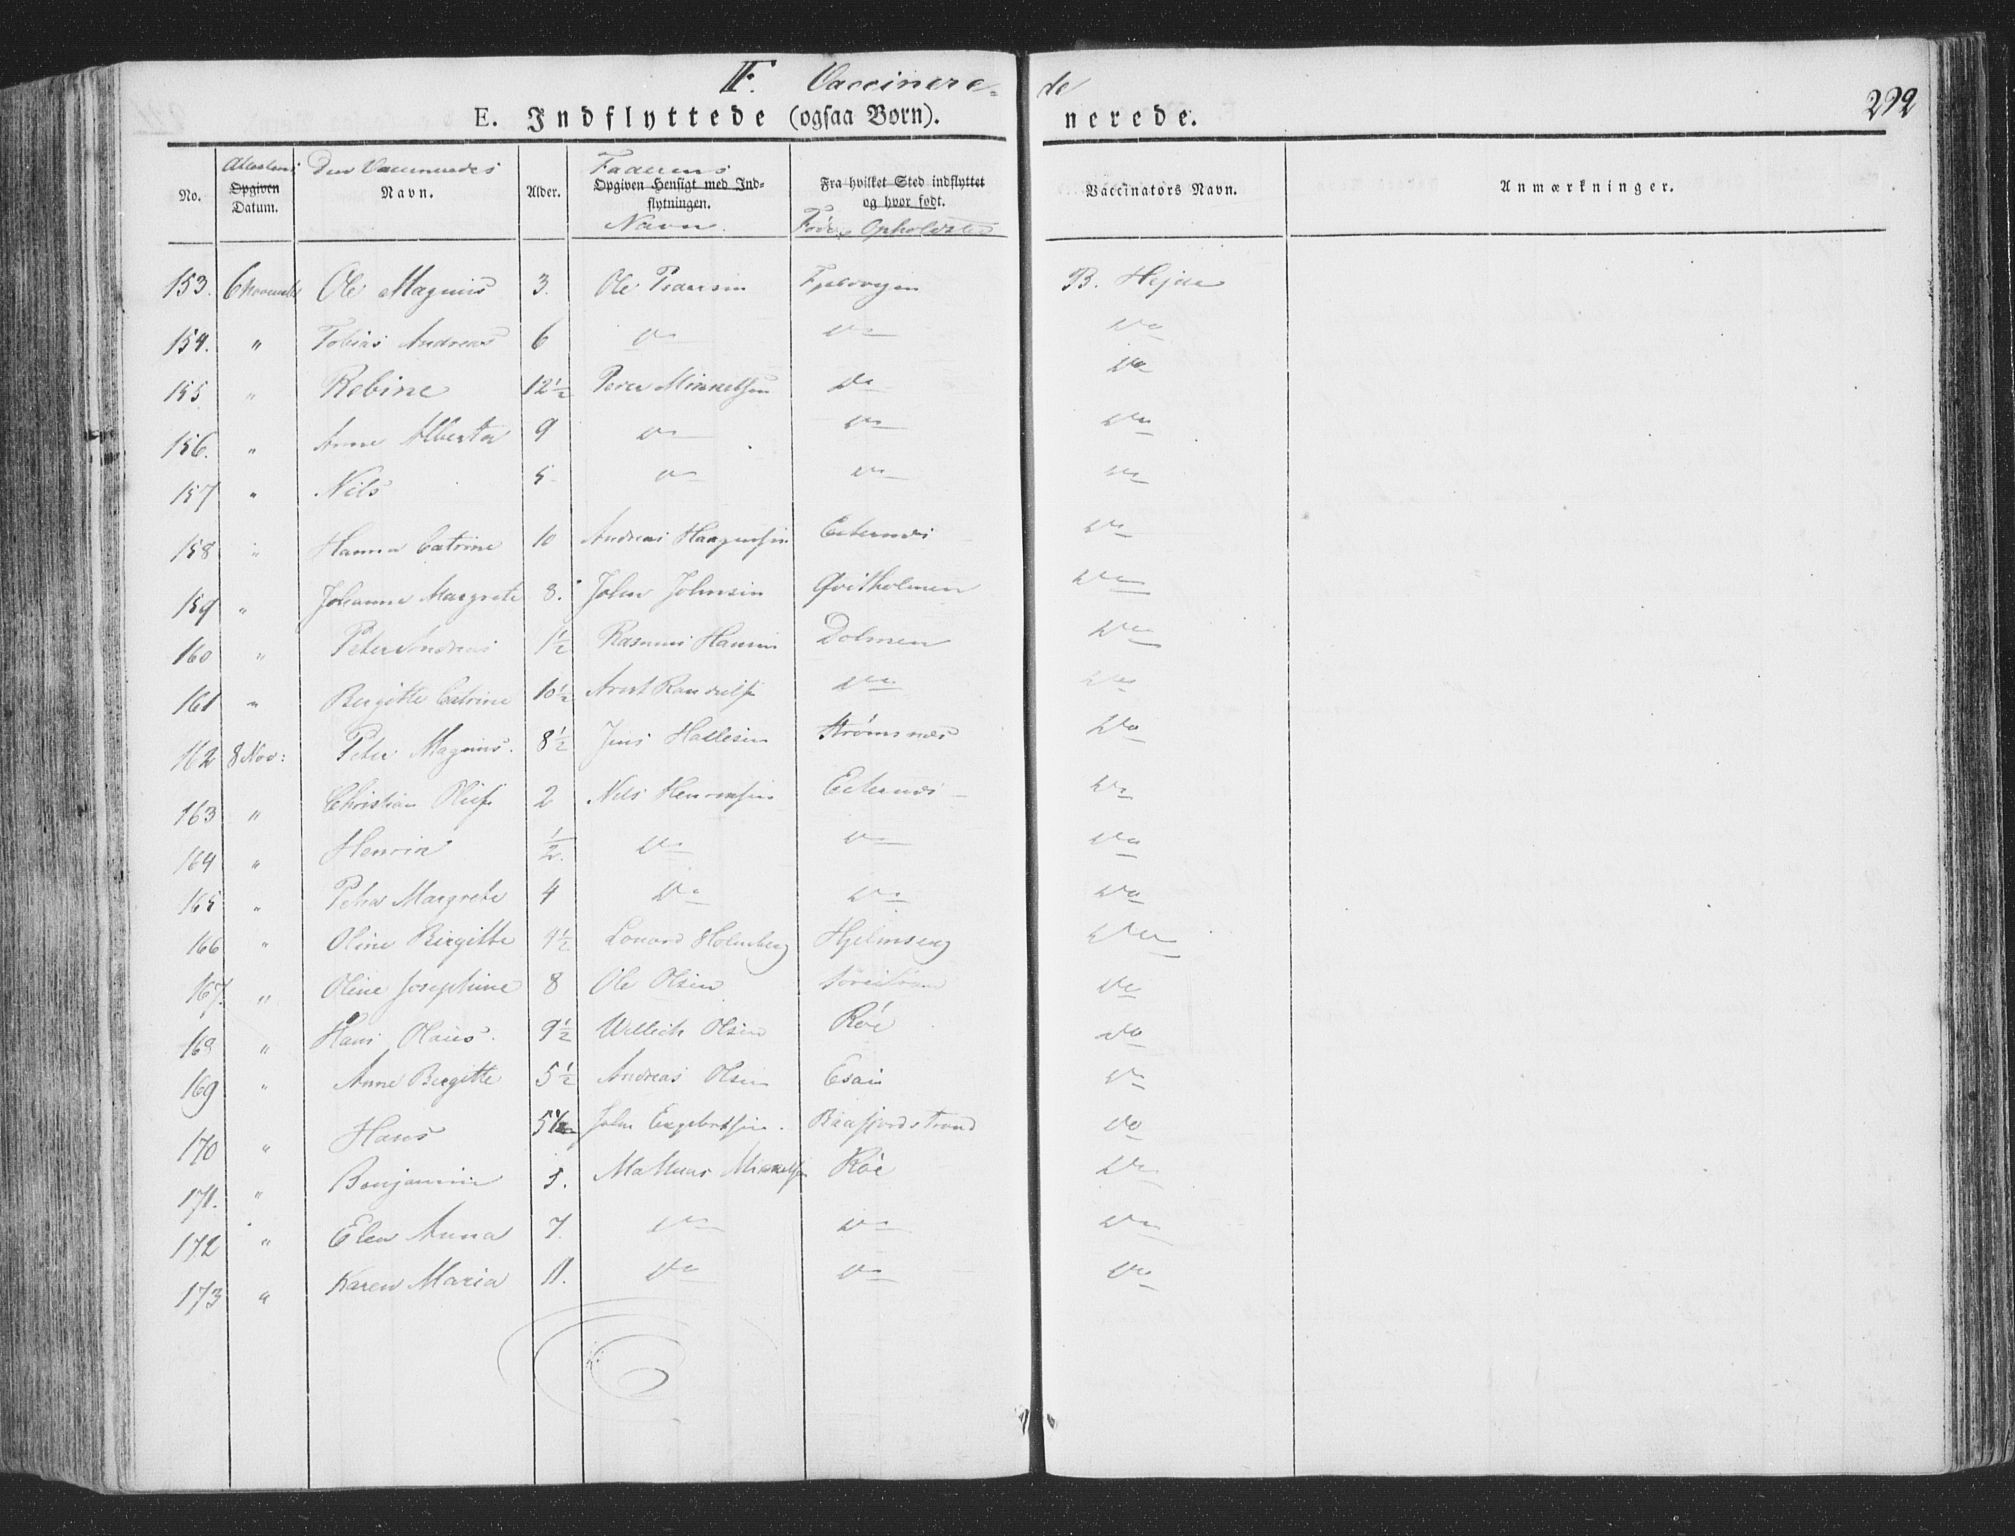 F. Vaccinere- de 292
E. Indflyttede (ogsaa Børn). nerede.
No. Attestens Opgiven Datum. Den Vaccineredes Navn. Alder. Faderens Opgiven Hensigt med Ind- flytningen. Navn. Fra hvilket Sted indflyttet og hvor født. Opholdsted Vaccinators Navn. Anmærkninger.
153. 6 November Ole Magnus 3. Ole B. Hejde
154. " Tobias Andreas 6 do do do
155 " Rebine 12½ Peder Mikkelsen do do
156. " Anne Alberta 9 do do do
157 " Nils 5 do do do
158 " Hanna Catrine 10 Andreas do
159 " Johanne Margrete 8. John Johnsen Qvitholmen do
160 " Peter Andreas 1½ Rasmus Hansen Dolmen do
161 " Bergitte Catrine 10½ do do
162 8 Nov: Peter Magnus. 8½ Jens Hallesen Strømsnes do
163 " Christian 2 Nils do
164 " Henrik ½. do do do
165 " Petra Margrete 4 do do do
166 " Oline Birgitte 4½ Holmberg do
167. " Oline Josephine 8 Ole Olsen do
168 " Hans Olaus. 9½ Olsen Röe do
169 " Anne Birgitte 5½ Andreas Olsen do
170 " Hans 5½ John Engebretsen. do
171. " Benjamin 5. Mathias Mikkelsen Röe do
172 " Elen Anna 7. do do do
173 " Karen Maria 11. do do do